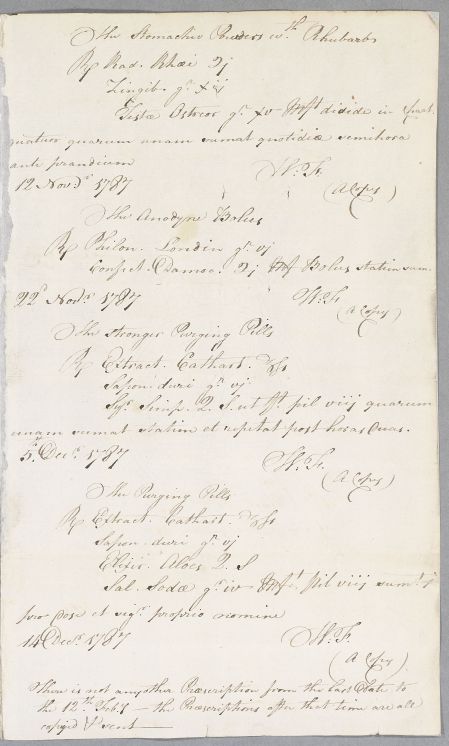 The Stomachic Powders wth. Rhubarb
℞ Rad. Rhæi ℈j
Zingib. gr. xij
Testæ Ostreor gr. xv Mft divide in chart.
quatuor quarum unam sumat quotidiæ semihora
ante prandium
W. F.
12 Novr. 1787
(A Copy)
The Anodyne Bolus
℞ Philon. Londin gr. vj
Confect. Damoc. ℈j Mf Bolus statim sum.
22d Novr. 1787
W. F.
(A Copy)
The Stronger Purging Pills
℞ Extract. Cathart. ʒſs
Sapon. duri gr. vj
Syr. Simp. Q. S. ut ft. pil viij quarum
unam sumat statim et repetat post horas duas.
5th. Decr. 1787
W. F.
(A Copy)
The Purging Pills
℞ Extract. Cathart. ʒſs
Sapon. duri gr. vj
Elixir. Aloes Q. S
Sal. Sodæ gr. iv Mft pil viij sumt ij
pro dose et sigr. proprio nomine
14 Decr. 1787
W. F.
(A Copy)
There is not any other Præscription from the last Date to
the 12th Feby — the Præscriptions after that time are all
copyed & sent